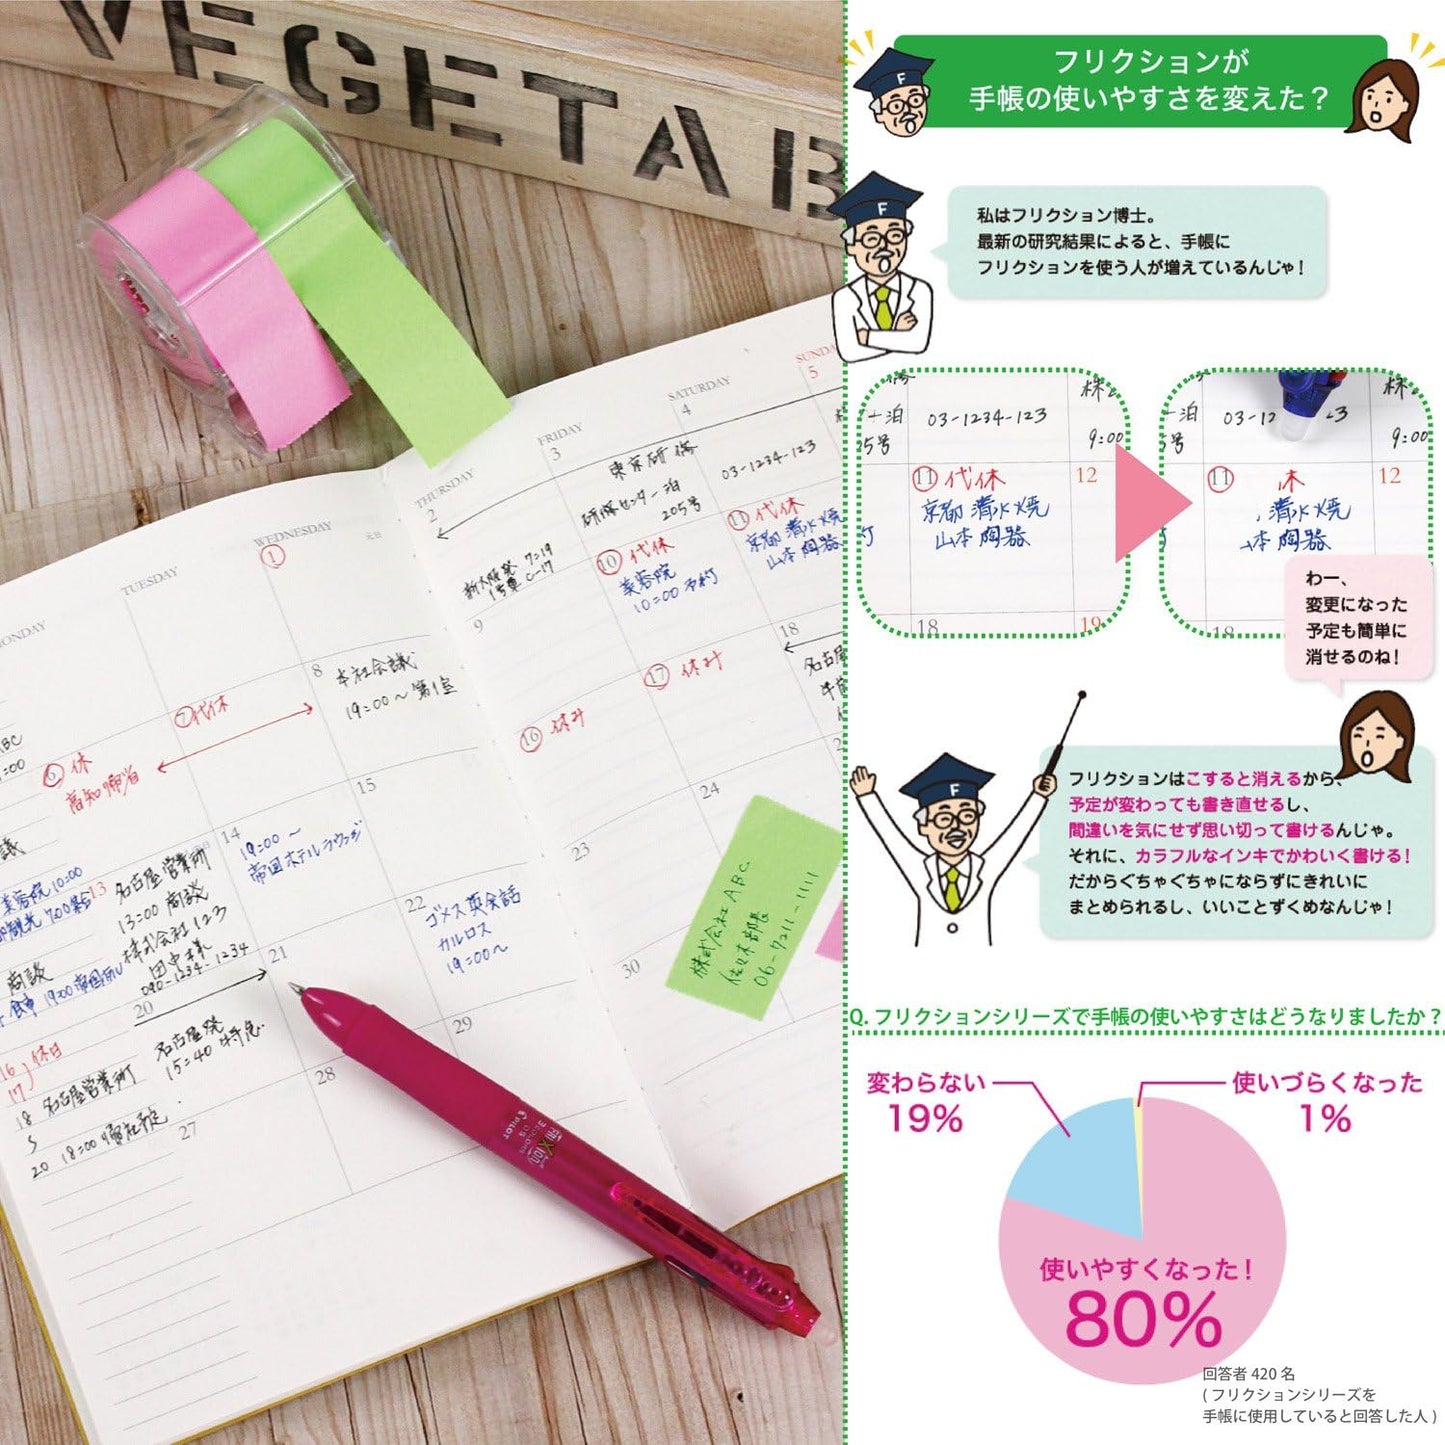 VEGETAB
MONDAY
TUESDAY
WEDNESDAY
THURSDAY
FRIDAY
SATURDAY
SUNDAY
1
元日
2
3
4
5
東京研修
研修センター泊
205号
03-1234-123
新大阪発 7:19
1号車 C-17
6 休
高知帰省
7 代休
8
本社会議
19:00〜 第1室
9
10 代休
美容院
10:00 予約
11 代休
京都 清水焼
山本 陶器
美容院 10:00
13
名古屋営業所
13:00 商談
株式会社 123
田中様
090-1234-1234
商談
14
19:00〜
帝国ホテルラウンジ
15
16 休み
17 休み
18
16
17 休日
18 名古屋営業所
20 18:00
20
名古屋発
15:40 特急
21
22
ゴメス英会話
カルロス
19:00〜
23
24
27
28
29
30
株式会社 ABC
佐々木部長
06-7211-1111
FRIXION
PILOT
フリクションが
手帳の使いやすさを変えた?
F
F
私はフリクション博士。
最新の研究結果によると、手帳に
フリクションを使う人が増えているんじゃ!
03-1234-123
9:00
11 代休
京都 清水焼
山本 陶器
12
18
19
03-12
-3
9:00
11 休
清水焼
本 陶器
12
わー、
変更になった
予定も簡単に
消せるのね!
F
フリクションはこすると消えるから、
予定が変わっても書き直せるし、
間違いを気にせず思い切って書けるんじゃ。
それに、カラフルなインキでかわいく書ける!
だからぐちゃぐちゃにならずにきれいに
まとめられるし、いいことずくめなんじゃ!
Q. フリクションシリーズで手帳の使いやすさはどうなりましたか?
変わらない
19%
使いづらくなった
1%
使いやすくなった!
80%
回答者 420 名
( フリクションシリーズを
手帳に使用していると回答した人 )